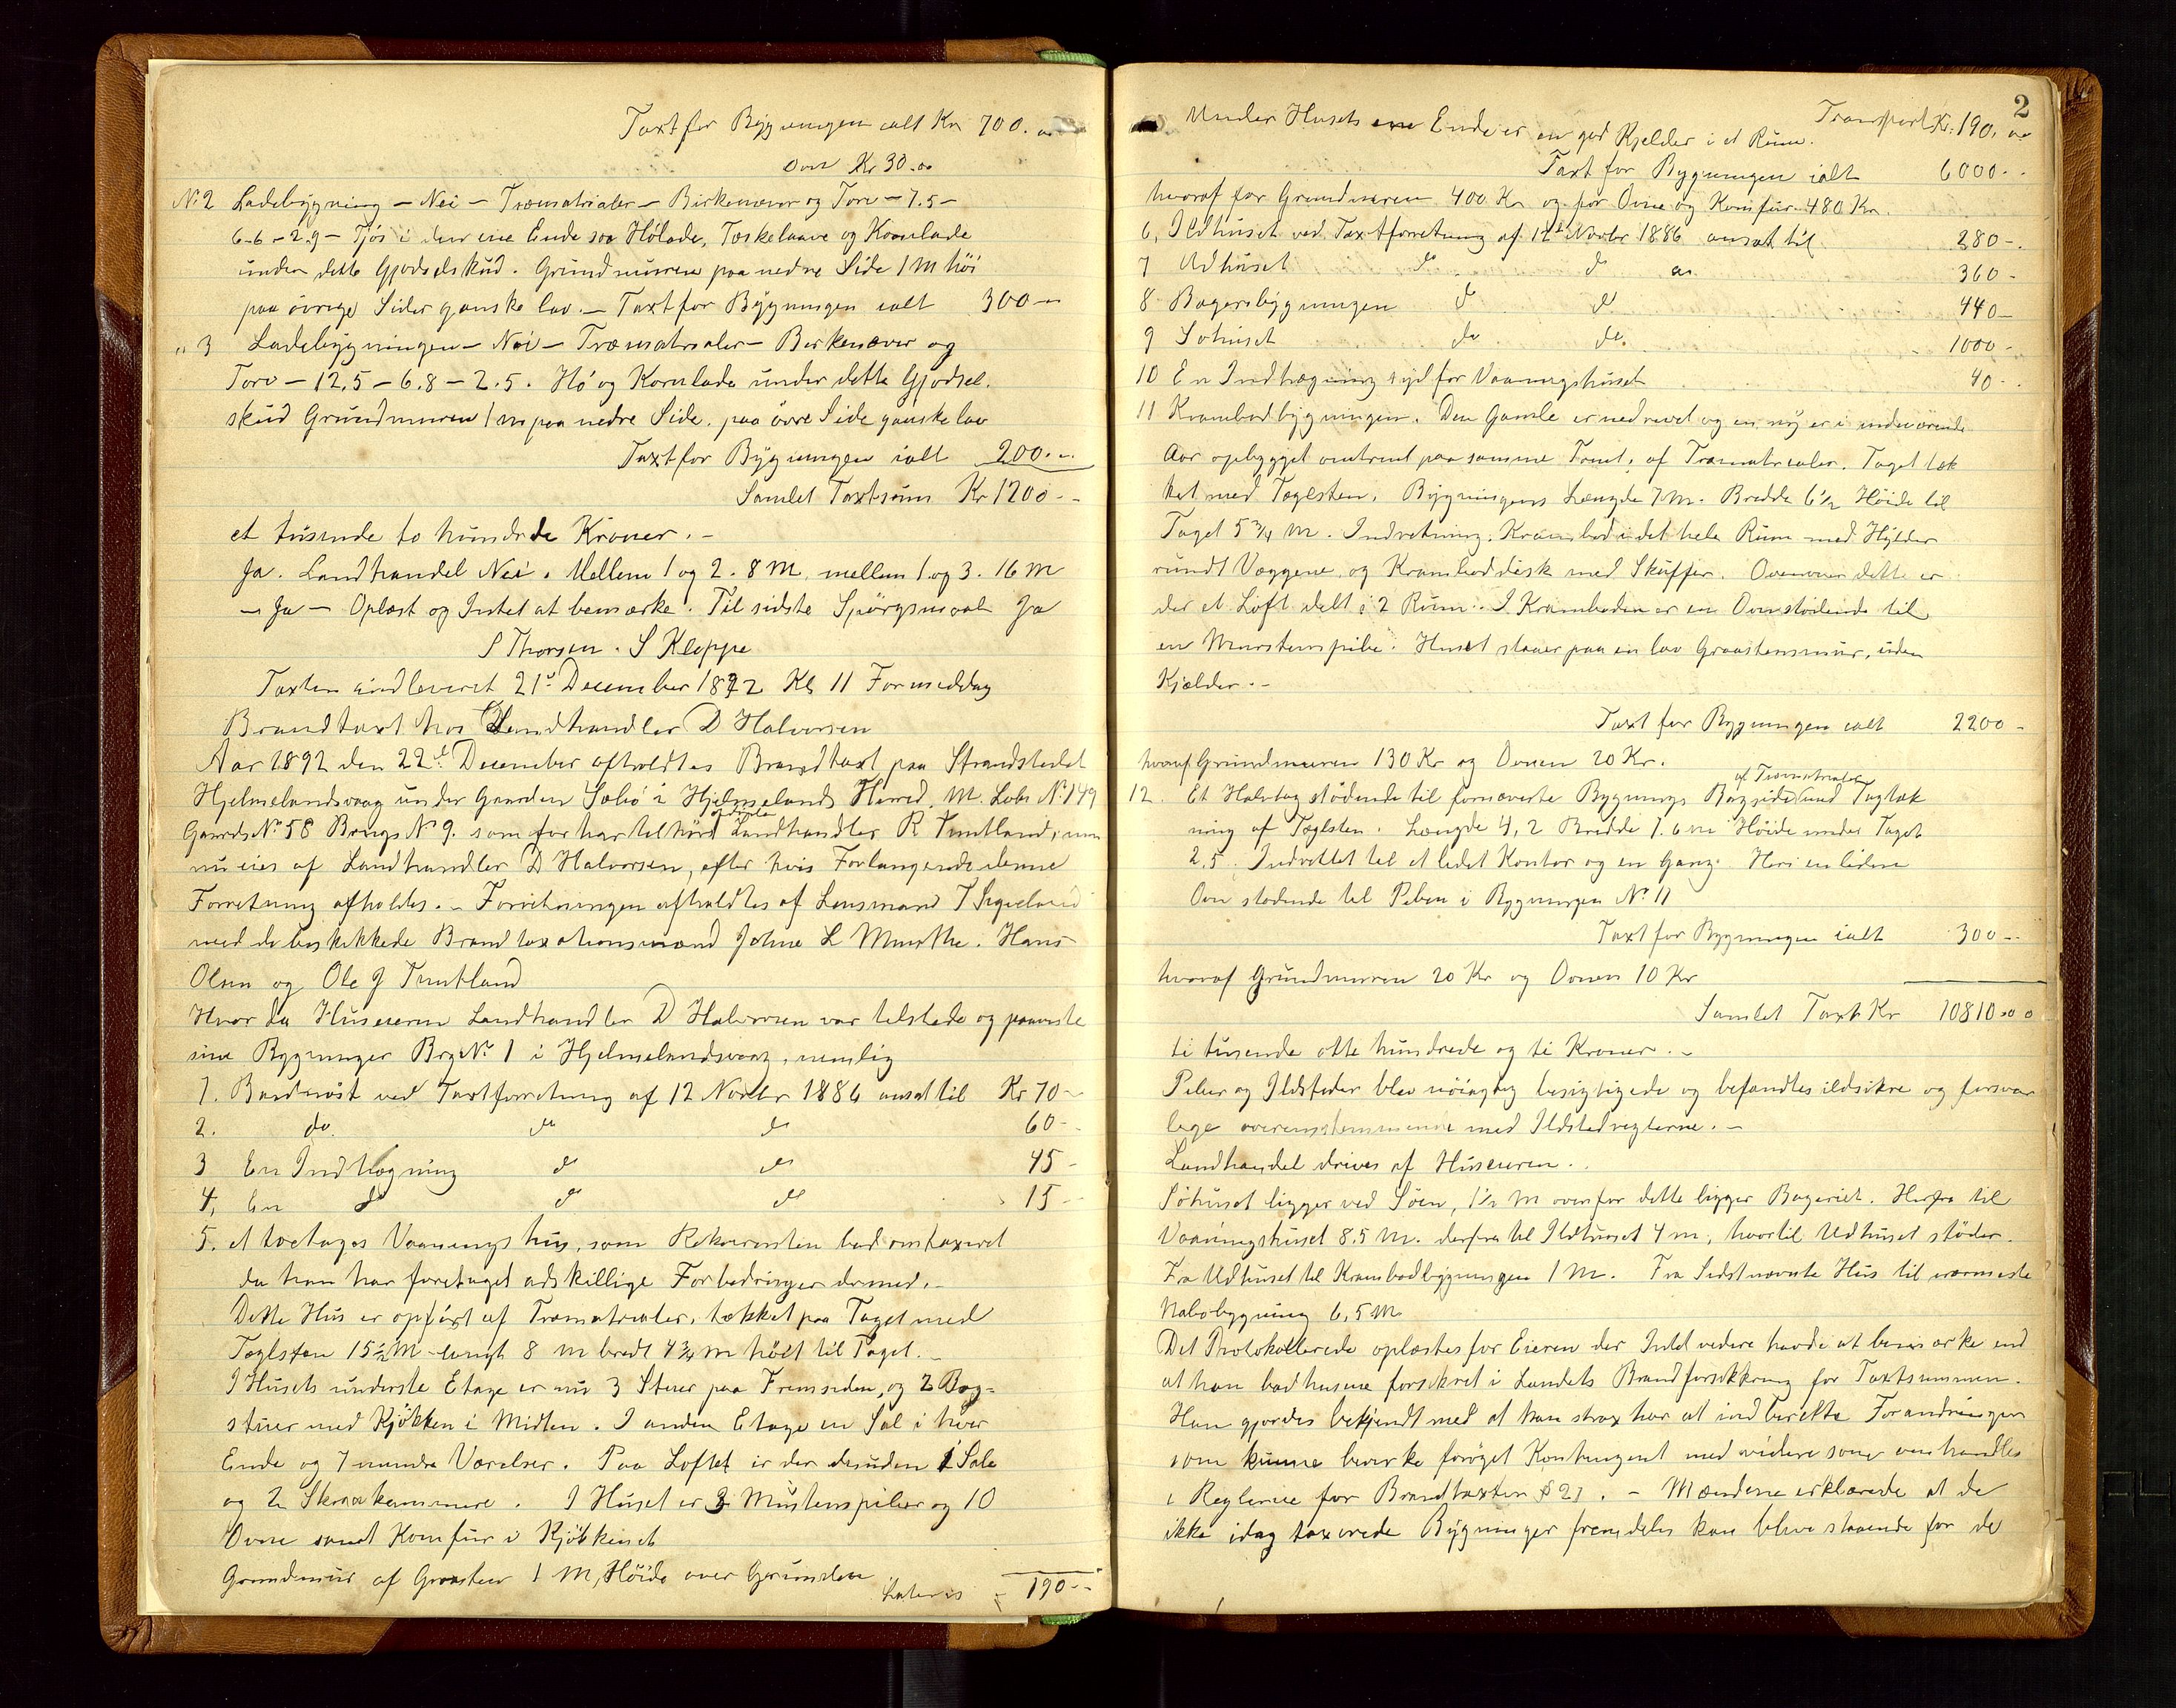 Taxt for Bygningen ialt Kr 700.
Ovn Kr 30.00
No 2 Ladebygning – Nei – Træmatrialer – Birkenæver og Torv – 7.5 –
6.6 – 2.9 – Fjøs i den ene Ende saa Hølade, Tærskelaave og Kornlade
under dette Gjødselskud. Grundmuren paa nedre Side 1 M høi
paa øvrige Sider ganske lav. – Taxt for Bygningen ialt 300 –
" 3 Ladebygningen – Nei – Træmatrialer – Birkenæver og
Torv – 12.5 – 6.8 – 2.5. Hø og Kornlade under dette Gjødsel.
skud Grundmuren 1 m paa nedre Side. paa øvre Side ganske lav
Taxt for Bygningen ialt 200. –
Samlet Taxtsum Kr 1200 –
et tusinde to hundrede Kroner. –
Ja. Landhandel Nei. Mellem 1 og 2. 8 M, mellem 1 og 3. 16 M
– Ja – Oplæst og Intet at bemærke. Til sidste Spørgsmaal Ja
S Thorsen. S Kleppe
Taxten indleveret 21de December 1892 Kl 11 Formiddag
Brandtaxt hos Landhandler D Halvorsen
Aar 1892 den 22de December afholdtes Brandtaxt paa Strandstedet
Hjelmelandsvaag under Gaarden Sæbø i Hjelmelands Herred, M. Løbe No 149
Gaards No 58 Brugs No 9. som før har tilhørt Landhandler R Tuntland, men
nu eies af Landhandler D Halvorsen, efter hvis Forlangende denne
Forretning afholdes. – Forretningen afholdtes af Lensmand T Sigveland
med de beskikkede Brandtaxationsmænd Johne L Munthe. Hans
Olsen og Ole J Tuntland
Hvor da Huseieren Landhandler D Halvorsen var tilstede og paaviste
sine Bygninger Byg No 1 i Hjelmelandsvaag, nemlig
1. Baadnøst ved Taxtforretning af 12 Novbr 1886 ansat til Kr 70 –
2. do. do do 60 –
3 En Indhegning do do 45 –
4, En do do do 15 –
5. et toetages Vaaningshus, som Rekvirenten bad omtaxeret
da han har foretaget adskillige Forbedringer dermed. –
Dette Hus er opført af Træmatrialer, tækket paa Taget med
Taglsten 15½ M langt 8 m bredt 4¾ m høit til Taget. –
I Husets underste Etage er nu 3 Stuer paa Fremsiden, og 2 Bag=
stuer med Kjøkken i Midten. I anden Etage en Sal i hver
Ende og 7 mindre Værelser. Paa Loftet er der desuden 1 Sale
og 2 Skraakammere. I Huset er 3 Murstenspiber og 10
Ovne samt Komfur i Kjøkkenet
Grundmur af Graasten 1 M, Høide over Grunden
Lateris 190 –
2
Transport Kr. 190.
Under Husets ene Ende er en god Kjelder i et Rum.
Taxt for Bygningen ialt 6000 –
hvoraf for Grundmuren 400 Kr og for Ovne og Komfur 480 Kr.
6, Ildhuset ved Taxtforretning af 12te Novbr 1886 ansat til 280 –
7 Udhuset do do 360 –
8 Bageribygningen do do 440 –
9 Søhuset do do. 1000 –
10 En Indhegning syd for Vaaningshuset 40 –
11 Krambodbygningen. Den Gamle er nedrevet og en ny er i indeværende
Aar opbygget omtrent paa samme Tomt, af Træmatrialer. Taget tæk
ket med Taglsten. Bygningens Længde 7 M. Bredde 6½ Høide til
Taget 5¾ M. Indretning. Krambod i det hele Rum med Hylder
rundt Væggene, og Kramboddisk med Skuffer. Ovenover dette er
der et Loft delt i 2 Rum. I Kramboden er en Ovn stødende til
en Murstenspibe. Huset staaer paa en lav Graastensmur, uden
Kjælder. –
Taxt for Bygningen ialt 2200 –
hvoraf Grundmuren 130 Kr og Ovnen 20 Kr.
af Træmatrialer
12. Et Halvtag stødende til fornævnte Bygnings Bagside med Tagtæk
ning af Taglsten. Længde 4,2 Bredde 1.6 m Høide under Taget
2.5. Indrettet til et lidet Kontor og en Gang. Heri en liden
Ovn stødende til Piben i Bygningen No 11
Taxt for Bygningen ialt 300 –
hvoraf Grundmuren 20 Kr og Ovnen 10 Kr
Samlet Taxt Kr 10810.00
ti tusende otte hundrede og ti Kroner. –
Piber og Ildsteder blev nøiagtig besigtigede og befandtes ildsikre og forsvar
lige overensstemmende med Ildstedvegterne. –
Landhandel drives af Huseieren.
Søhuset ligger ved Søen, 1½ M ovenfor dette ligger Bageriet. Herfra til
Vaaningshuset 8.5 M. derfra til Ildhuset 4 m, hvortil Udhuset støder.
Fra Udhuset til Krambodbygningen 1 M. Fra Sidstnævnte Hus til nærmeste
Nabobygning 6,5 M
Det Protokollerede oplæstes for Eieren der Intet videre havde at bemærke end
at han bad husene forsikret i Landets Brandforsikkring for Taxtsummen.
Han gjordes bekjendt med at han strax har at indberette Forandringer
som kunne bevirke forøget Kontingent med videre som omhandles
i Reglerne for Brandtaxter § 21. – Mændene erklærede at de
ikke idag taxerede Bygninger fremdeles kan blive staaende for de